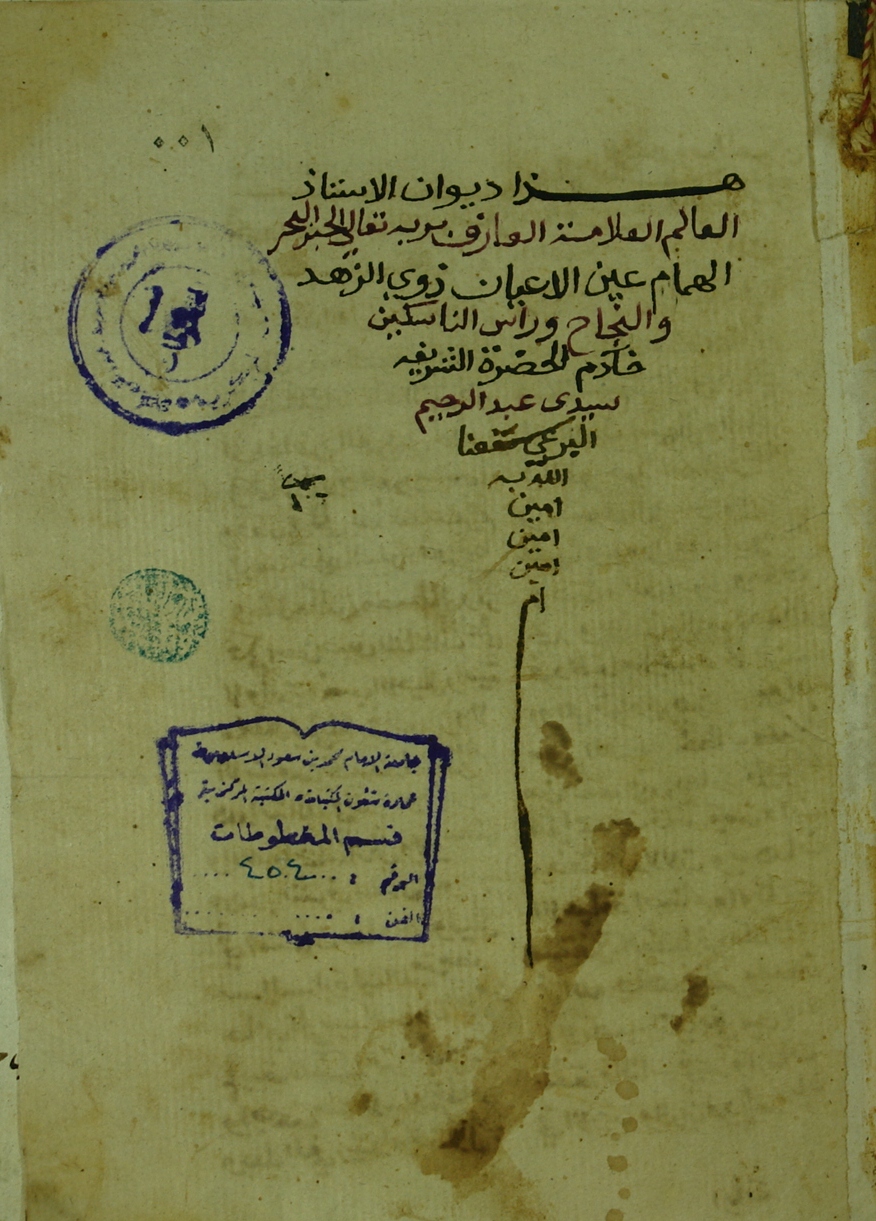 ٠٠١
هذا ديوان الاستاذ
العالم العلامة العارف بربه تعالي الحبر البحر
الهمام عين الاعيان ذوي الزهد
والنجاح وراس الناسكين
خادم الحضرة الشريفه
سيدى عبد الرحيم
البرعي نفعنا
الله به
امين
امين
امين
ام
جامعة الامام محمد بن سعود الاسلامية
عمادة شئون المكتبات المكتبة المركزية
قسم المخطوطات
الرقم : ٤٥٠٤
الفن :